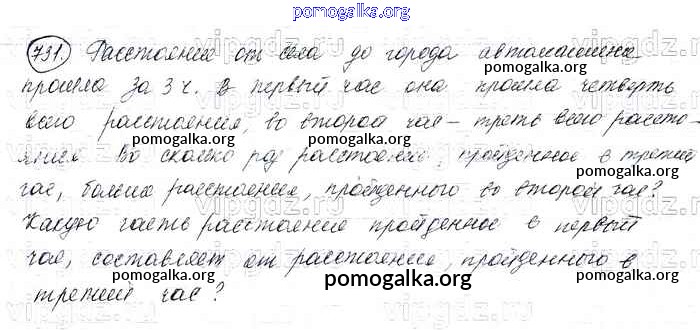 pomogalka.org
731. Расстояние от села до города автомашина
pomogalka.org
прошла за 3 ч. В первый час она прошла четверть
pomogalka.org
всего расстояния, во второй час - треть всего рассто-
pomogalka.org
яния. Во сколько раз расстояние, пройденное в третий
час, больше расстояния, пройденного во второй час?
pomogalka.org
Какую часть расстояние пройденное в первый
pomogalka.org
час, составляет от расстояния, пройденного в
pomogalka.org pomogalka.org
третий час?
pomogalka.org